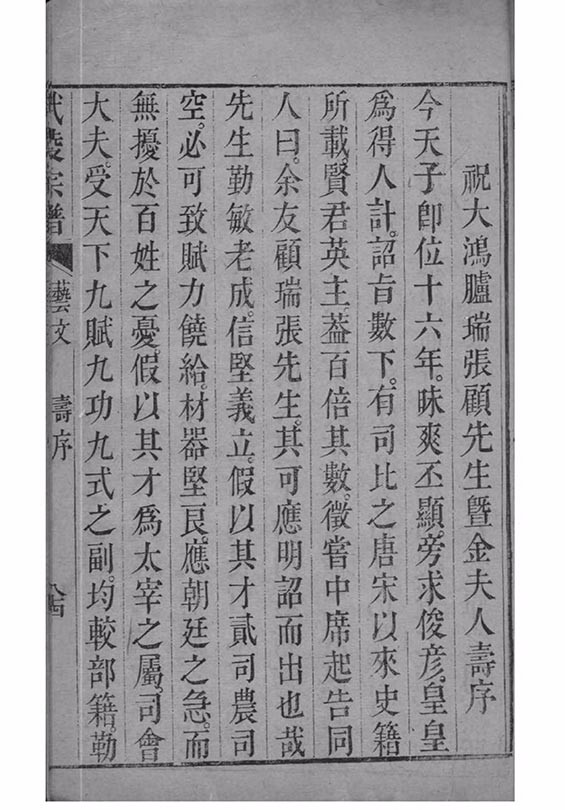 祝大鴻臚瑞張顧先生暨金夫人壽序
今天子卽位十六年。昧爽丕顯。旁求俊彥。皇皇
爲得人計。詔旨數下。有司比之唐宋以來史籍
所載。賢君英主。葢百倍其數。徵嘗中席起告同
人曰。余友顧瑞張先生。其可應明詔而出也哉
先生勤敏老成。信堅義立。假以其才貳司農司
空。必可致賦力饒給。材器堅良。應朝廷之急。而
無擾於百姓之憂。假以其才爲太宰之屬。司會
大夫。受天下九賦九功九式之副。均較部籍。勒
武陵宗譜 藝文 壽序 八古